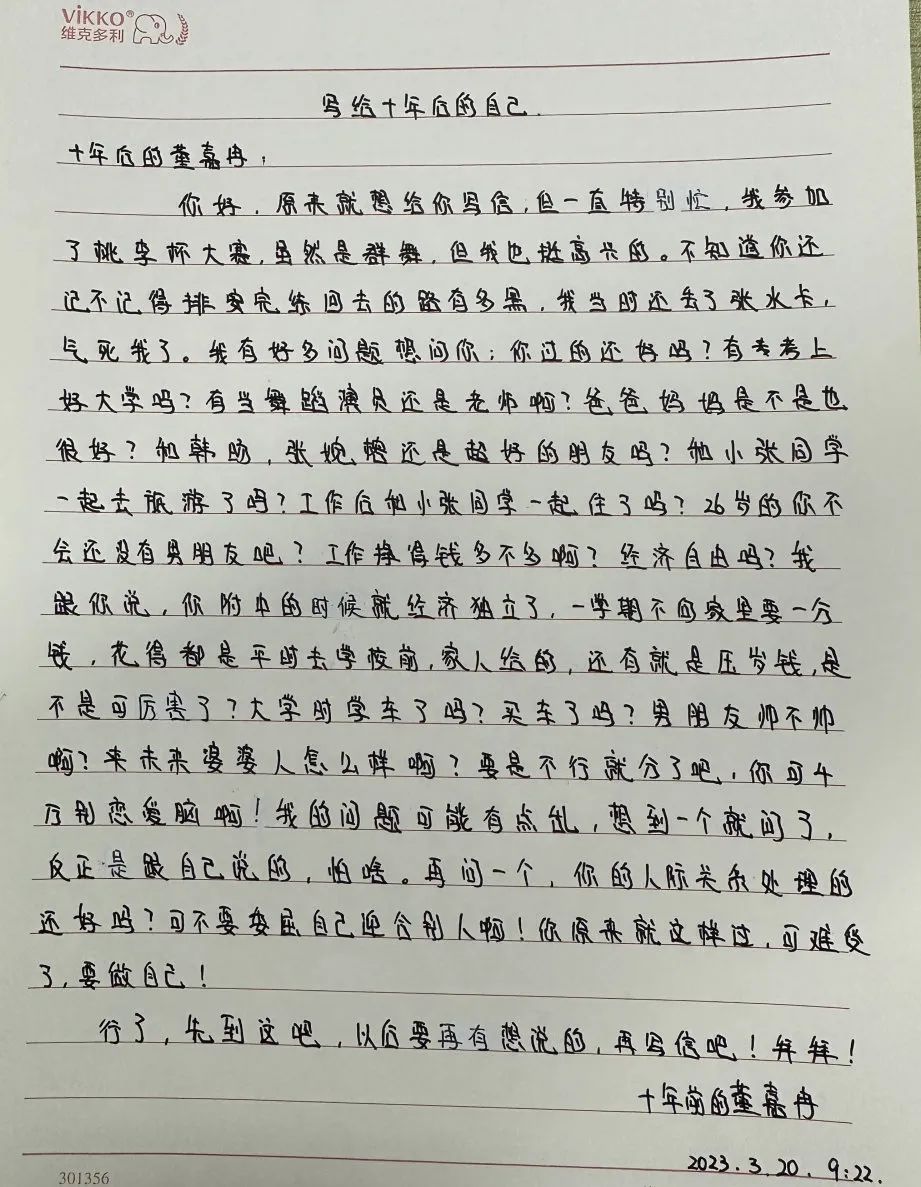 ViKKO®
维克多利
写给十年后的自己.
十年后的董嘉冉：
你好，原来就想给你写信，但一直特别忙，我参加
了桃李杯大赛，虽然是群舞，但我也挺高兴的。不知道你还
记不记得排实完练回去的路有多黑，我当时还丢了张水卡，
气死我了。我有好多问题想问你：你过的还好吗？有考上
好大学吗？有当舞蹈演员还是老师啊？爸爸妈妈是不是也
很好？和韩昉，张婉 还是超好的朋友吗？和小张同学
一起去旅游了吗？工作后和小张同学一起住了吗？26岁的你不
会还没有男朋友吧？工作挣得钱多不多啊？经济自由吗？我
跟你说，你附中的时候就经济独立了，一学期不向家里要一分
钱，花得都是平时去学校前，家人给的，还有就是压岁钱，是
不是可厉害了？大学时学车了吗？买车了吗？男朋友帅不帅
啊？未来婆婆人怎么样啊？要是不行就分了吧，你可千
万别恋爱脑啊！我的问题可能有点乱，想到一个就问了，
反正是跟自己说的，怕啥。再问一个，你的人际关系处理的
还好吗？可不要委屈自己迎合别人啊！你原来就这样过，可难受
了，要做自己！
行了，先到这吧，以后要再有想说的，再写信吧！拜拜！
十年前的董嘉冉
2023.3.20. 9:22.
301356